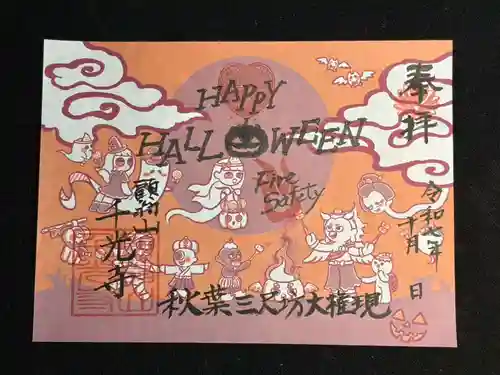 HAPPY
HALLOWEEN
Fire
Safety
奉拝
令和七年
十月 日
山
千光寺
秋葉三尺坊大権現